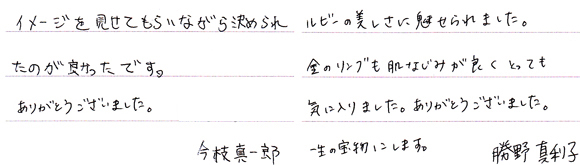 イメージを見せてもらいながら決められ
たのが良かったです。
ありがとうございました。
今枝真一郎
ルビーの美しさに魅せられました。
金のリングも肌なじみが良くとっても
気に入りました。ありがとうございました。
一生の宝物にします。
勝野真利子